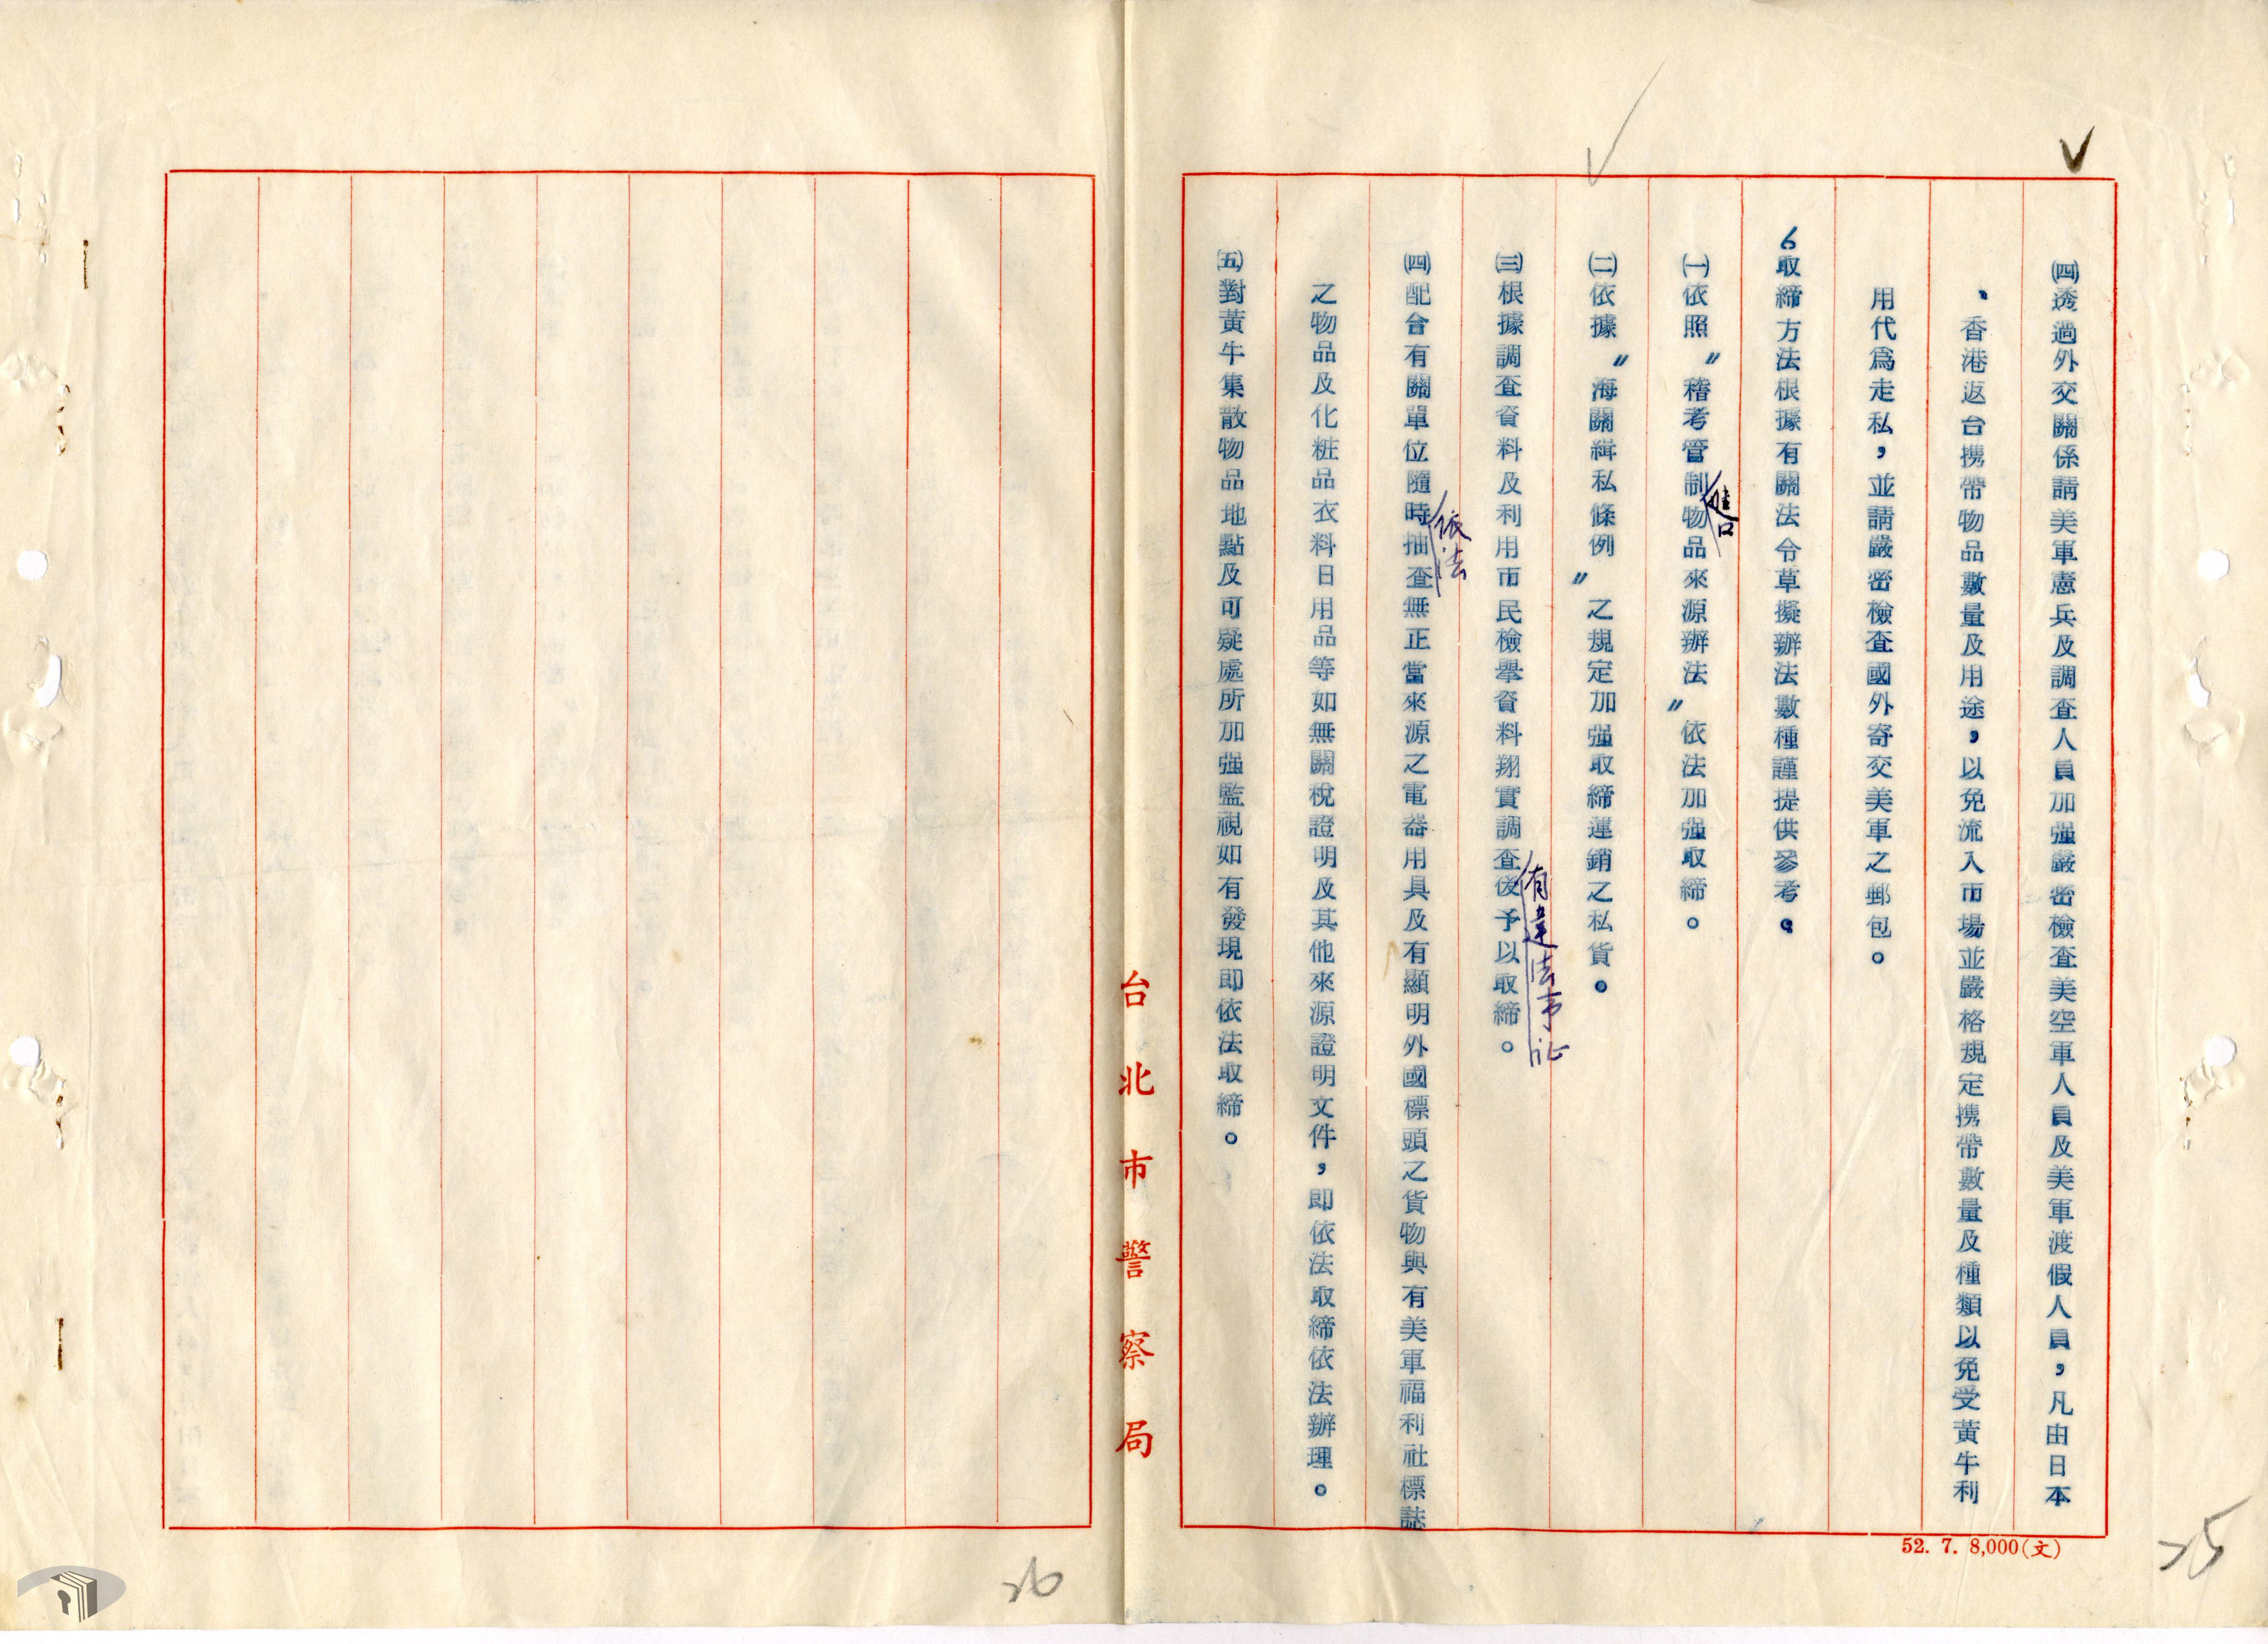 ㈣透過外交關係請美軍憲兵及調查人員加强嚴密檢查美空軍人員及美軍渡假人員，凡由日本
、香港返台携帶物品數量及用途，以免流入市場並嚴格規定携帶數量及種類以免受黃牛利
用代為走私，並請嚴密檢查國外寄交美軍之郵包。
6取締方法根據有關法令草擬辦法數種謹提供參考。
㈠依照〃稽考管制物品來源辦法〃依法加强取締。
㈡依據〃海關緝私條例〃之規定加强取締運銷之私貨。
㈢根據調查資料及利用市民檢舉資料翔實調查後予以取締。
有違法事証
㈣配合有關單位隨時抽查無正當來源之電器用具及有顯明外國標頭之貨物與有美軍福利社標誌
依法
之物品及化粧品衣料日用品等如無關稅證明及其他來源證明文件，即依法取締依法辦理。
㈤對黃牛集散物品地點及可疑處所加强監視如有發現即依法取締。
台北市警察局
52. 7. 8,000(文)
25
26